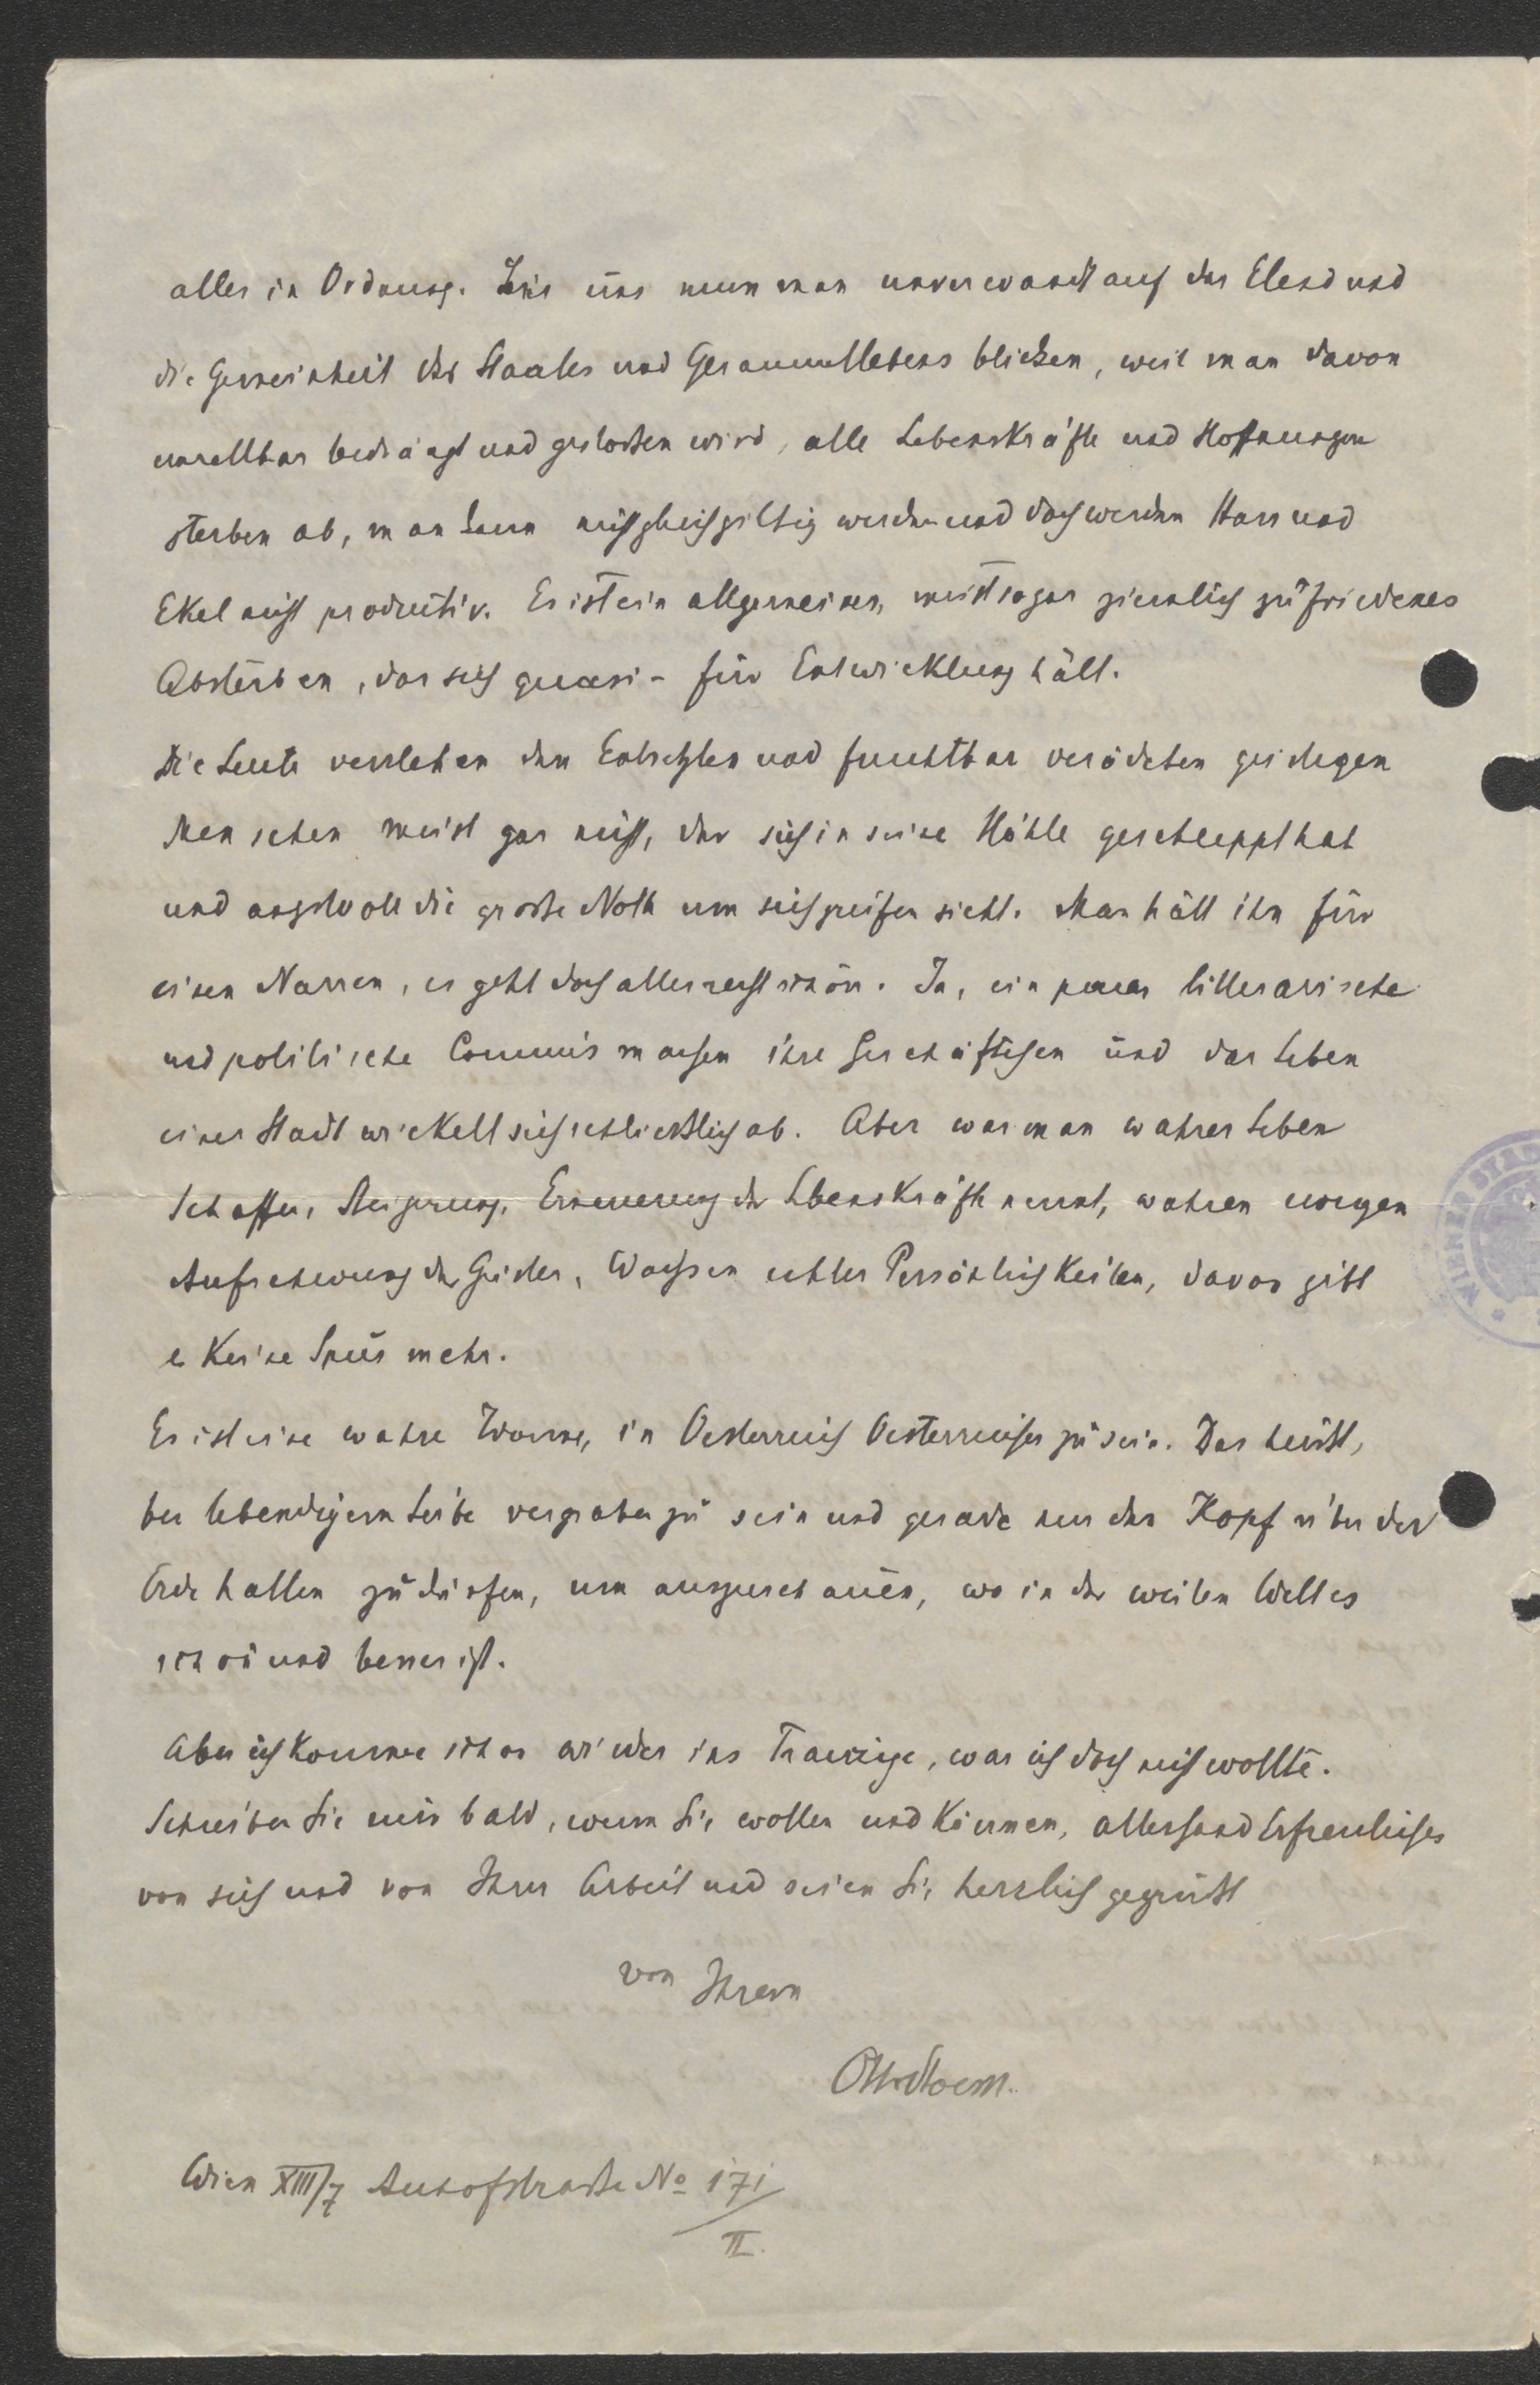 alles in Ordnung. Bei uns muss man unverwandt auf das Elend und
die Gemeinheit des Staates und Gesammtlebens blicken, weil man davon
unrettbar bedrängt und gestossen wird, alle Lebenskräfte und Hoffnungen
sterben ab, man kann nicht gleichgiltig werden und doch werden Hass und
Ekel nicht productiv. Es ist ein allgemeines, meist sogar ziemlich zufriedenes
Absterben, das sich quasi - für Entwicklung hält.
Die Leute verstehen den Entsetzten und furchtbar verödeten geistigen
Menschen meist gar nicht, der sich in seine Höhle geschleppt hat
und angstvoll die grosse Noth um sich greifen sieht. Man hält ihn für
einen Narren, es geht doch alles recht schön. Ja, ein paar litterarische
und politische Commis machen ihre Geschäftchen und das Leben
einer Stadt wickelt sich schließlich ab. Aber was man wahres Leben
Schaffen, Steigerung, Erneuerung der Lebenskräfte nennt, wahren
Aufschwung der Geister, Wachsen echter Persönlichkeiten, davon gibt
es keine Spur mehr.
Es ist eine wahre Wonne, in Oesterreich Oesterreicher zu sein. Das heißt,
bei lebendigem Leibe vergraben zu sein und gerade nur den Kopf über der
Erde halten zu dürfen, um auszuschauen, wo in der weiten Welt es
schön und besser ist.
Aber ich komme schon wieder ins Traurige, was ich doch nicht wollte.
Schreiben Sie mir bald, wenn Sie wollen und können, allerhand Erfreuliches
von sich und von Ihrer Arbeit und seien Sie herzlich gegrüßt
von Ihrem
Otto Stoessl.
Wien XIII/7 Auhofstrasse No 171
II.
WIENER STAD